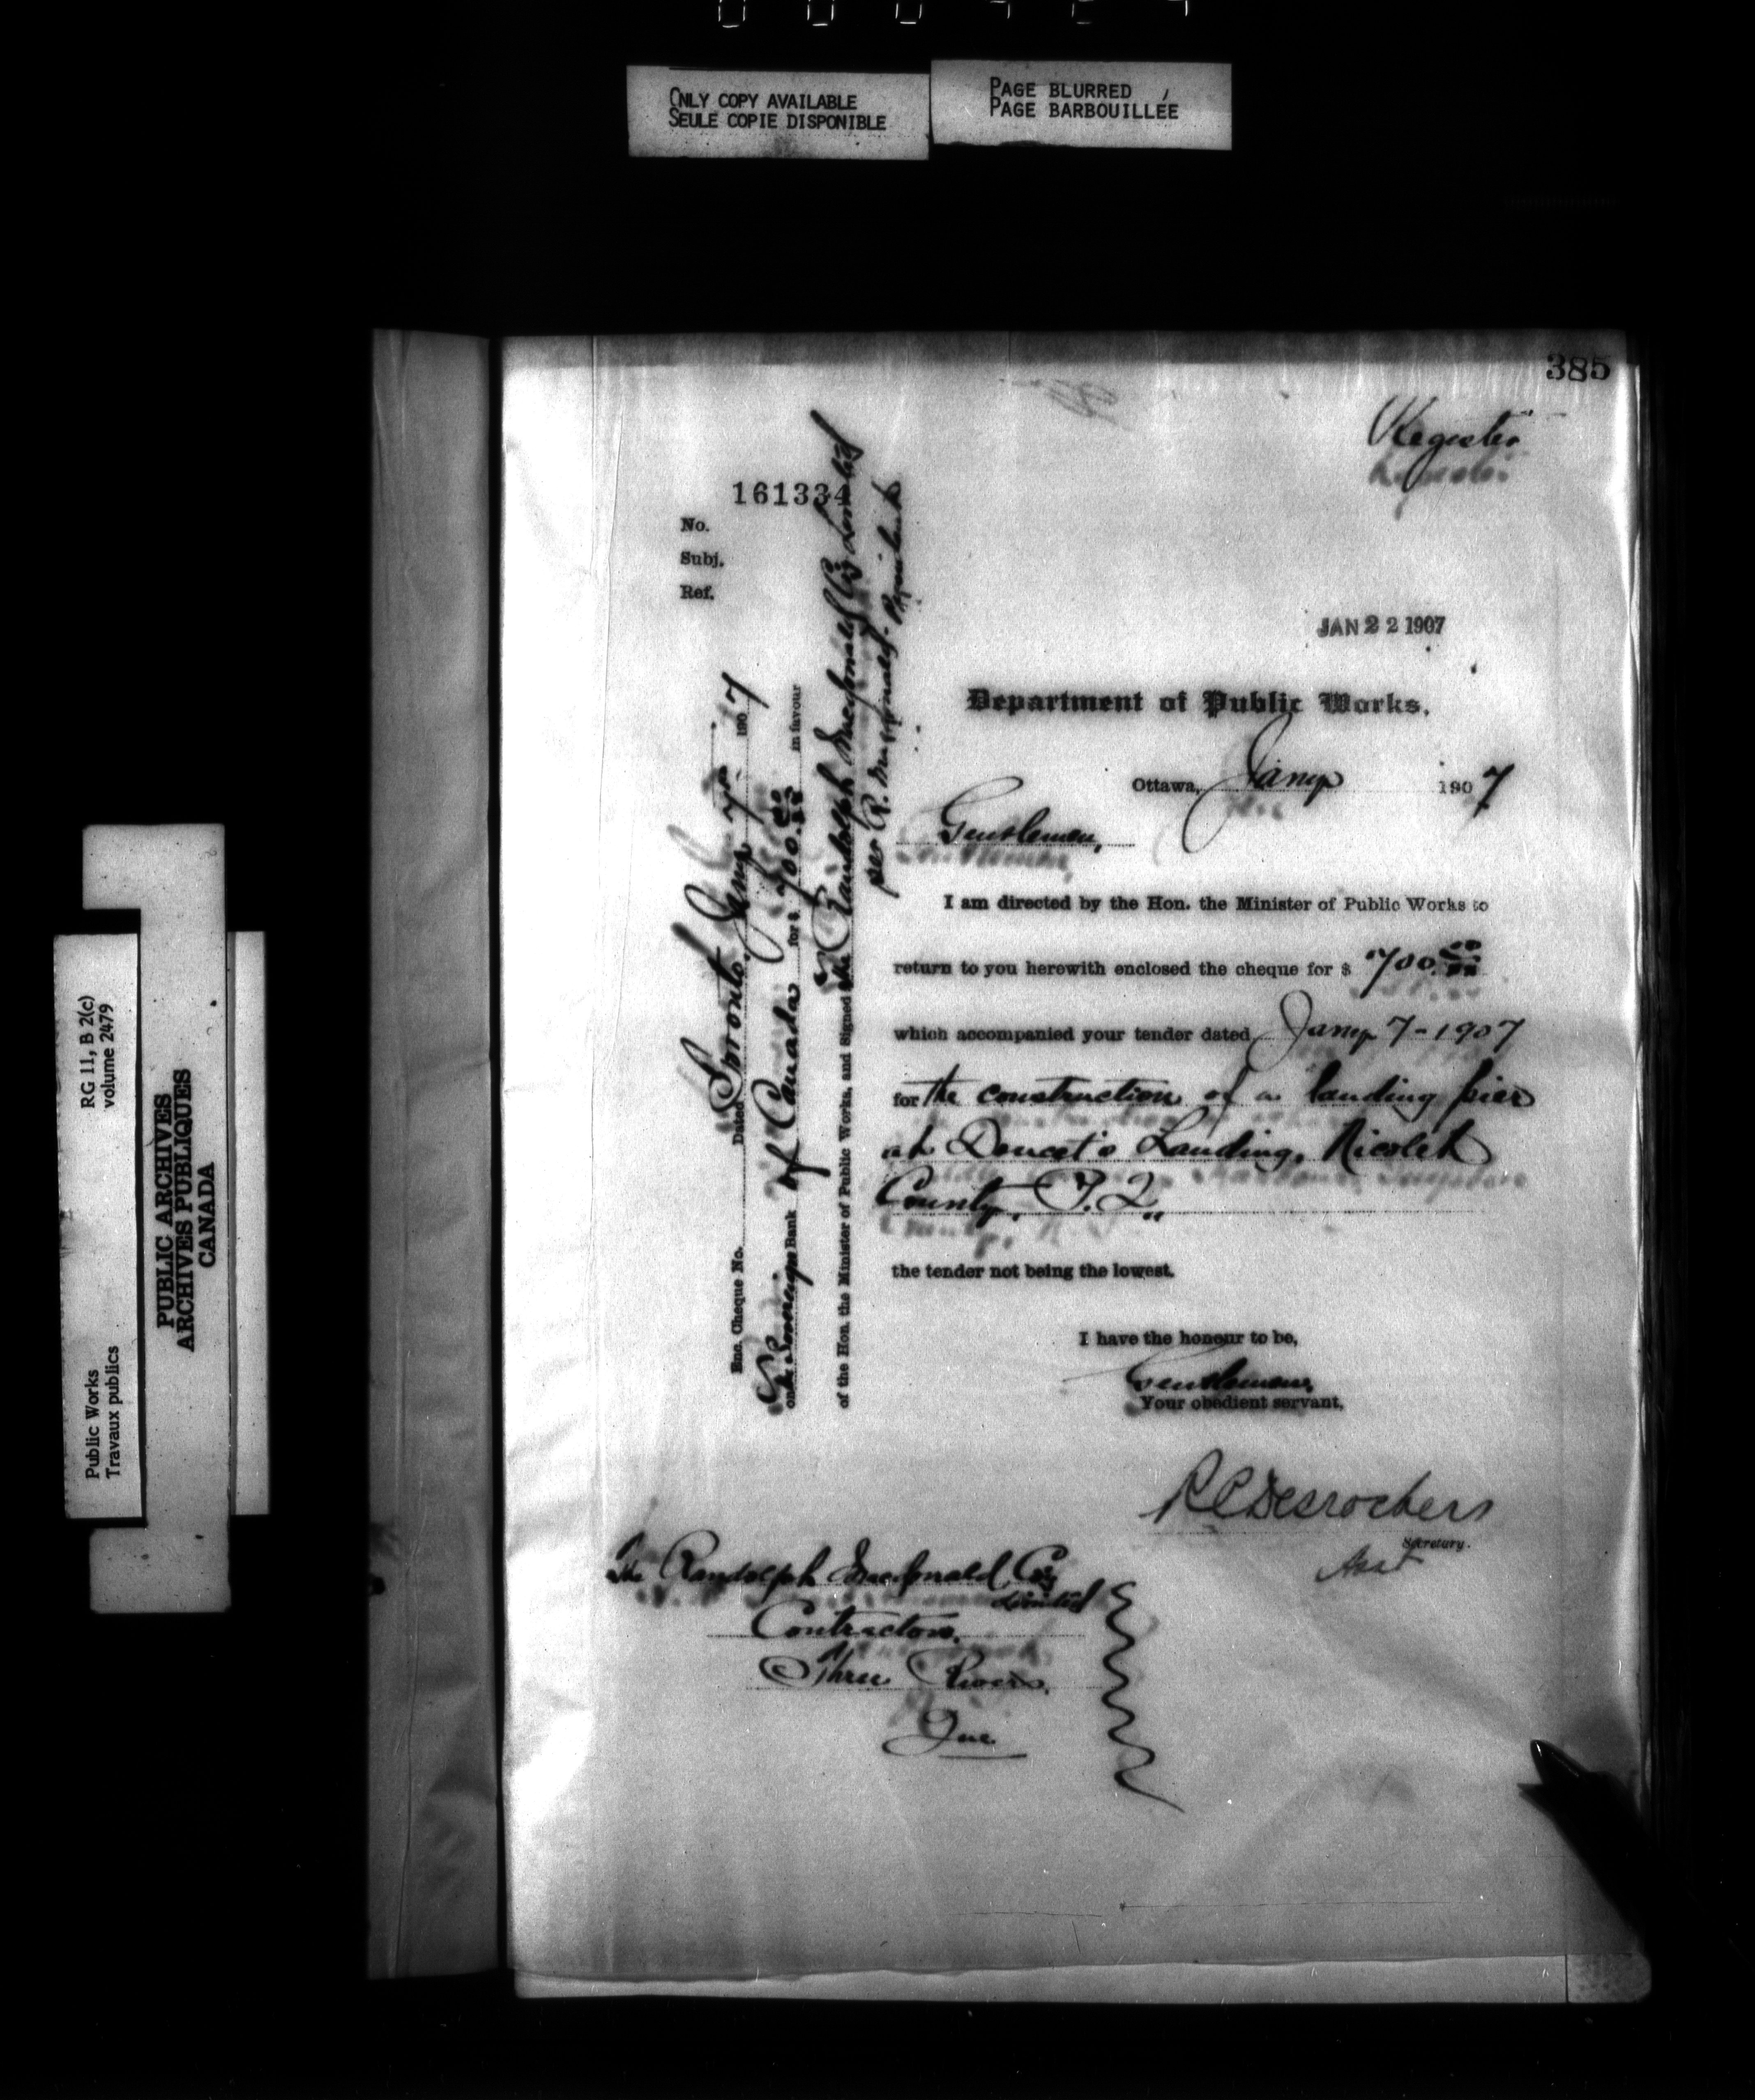 ONLY COPY AVAILABLE
SEULE COPIE DISPONIBLE
PAGE BLURRED
PAGE BARBOUILLÉE
385
Register
161334
No.
Subj.
Ref.
JAN 22 1907
Department of Public Works.
Ottawa, Jany 1907
Gentlemen,
I am directed by the Hon. the Minister of Public Works to
return to you herewith enclosed the cheque for $ 700.00
which accompanied your tender dated Jany 7-1907
for the construction of a landing pier
at Doucet's Landing, Nicolet
County, P.Q.,
the tender not being the lowest.
I have the honour to be,
Gentlemen,
Your obedient servant,
RC Desrochers
Secretary.
Asst
The Randolph Macdonald Coy
Limited
Contractors,
Three Rivers,
Que
Enc. Cheque No. Dated Toronto, Jany 7th 1907
on the Sovereign Bank of Canada for $ 700.00 in favour
of the Hon. the Minister of Public Works, and Signed The Randolph Macdonald Coy Limited
per R. Macdonald - President
Public Works
Travaux publics
RG 11, B 2(c)
volume 2479
PUBLIC ARCHIVES
ARCHIVES PUBLIQUES
CANADA